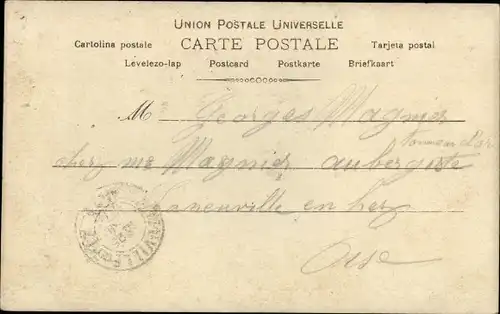 UNION POSTALE UNIVERSELLE
Cartolina postale CARTE POSTALE Tarjeta postal
Levelezo-lap Postcard Postkarte Briefkaart
M Georges Magnier
chez me Magnier aubergiste
Laneuville en hez
Oise